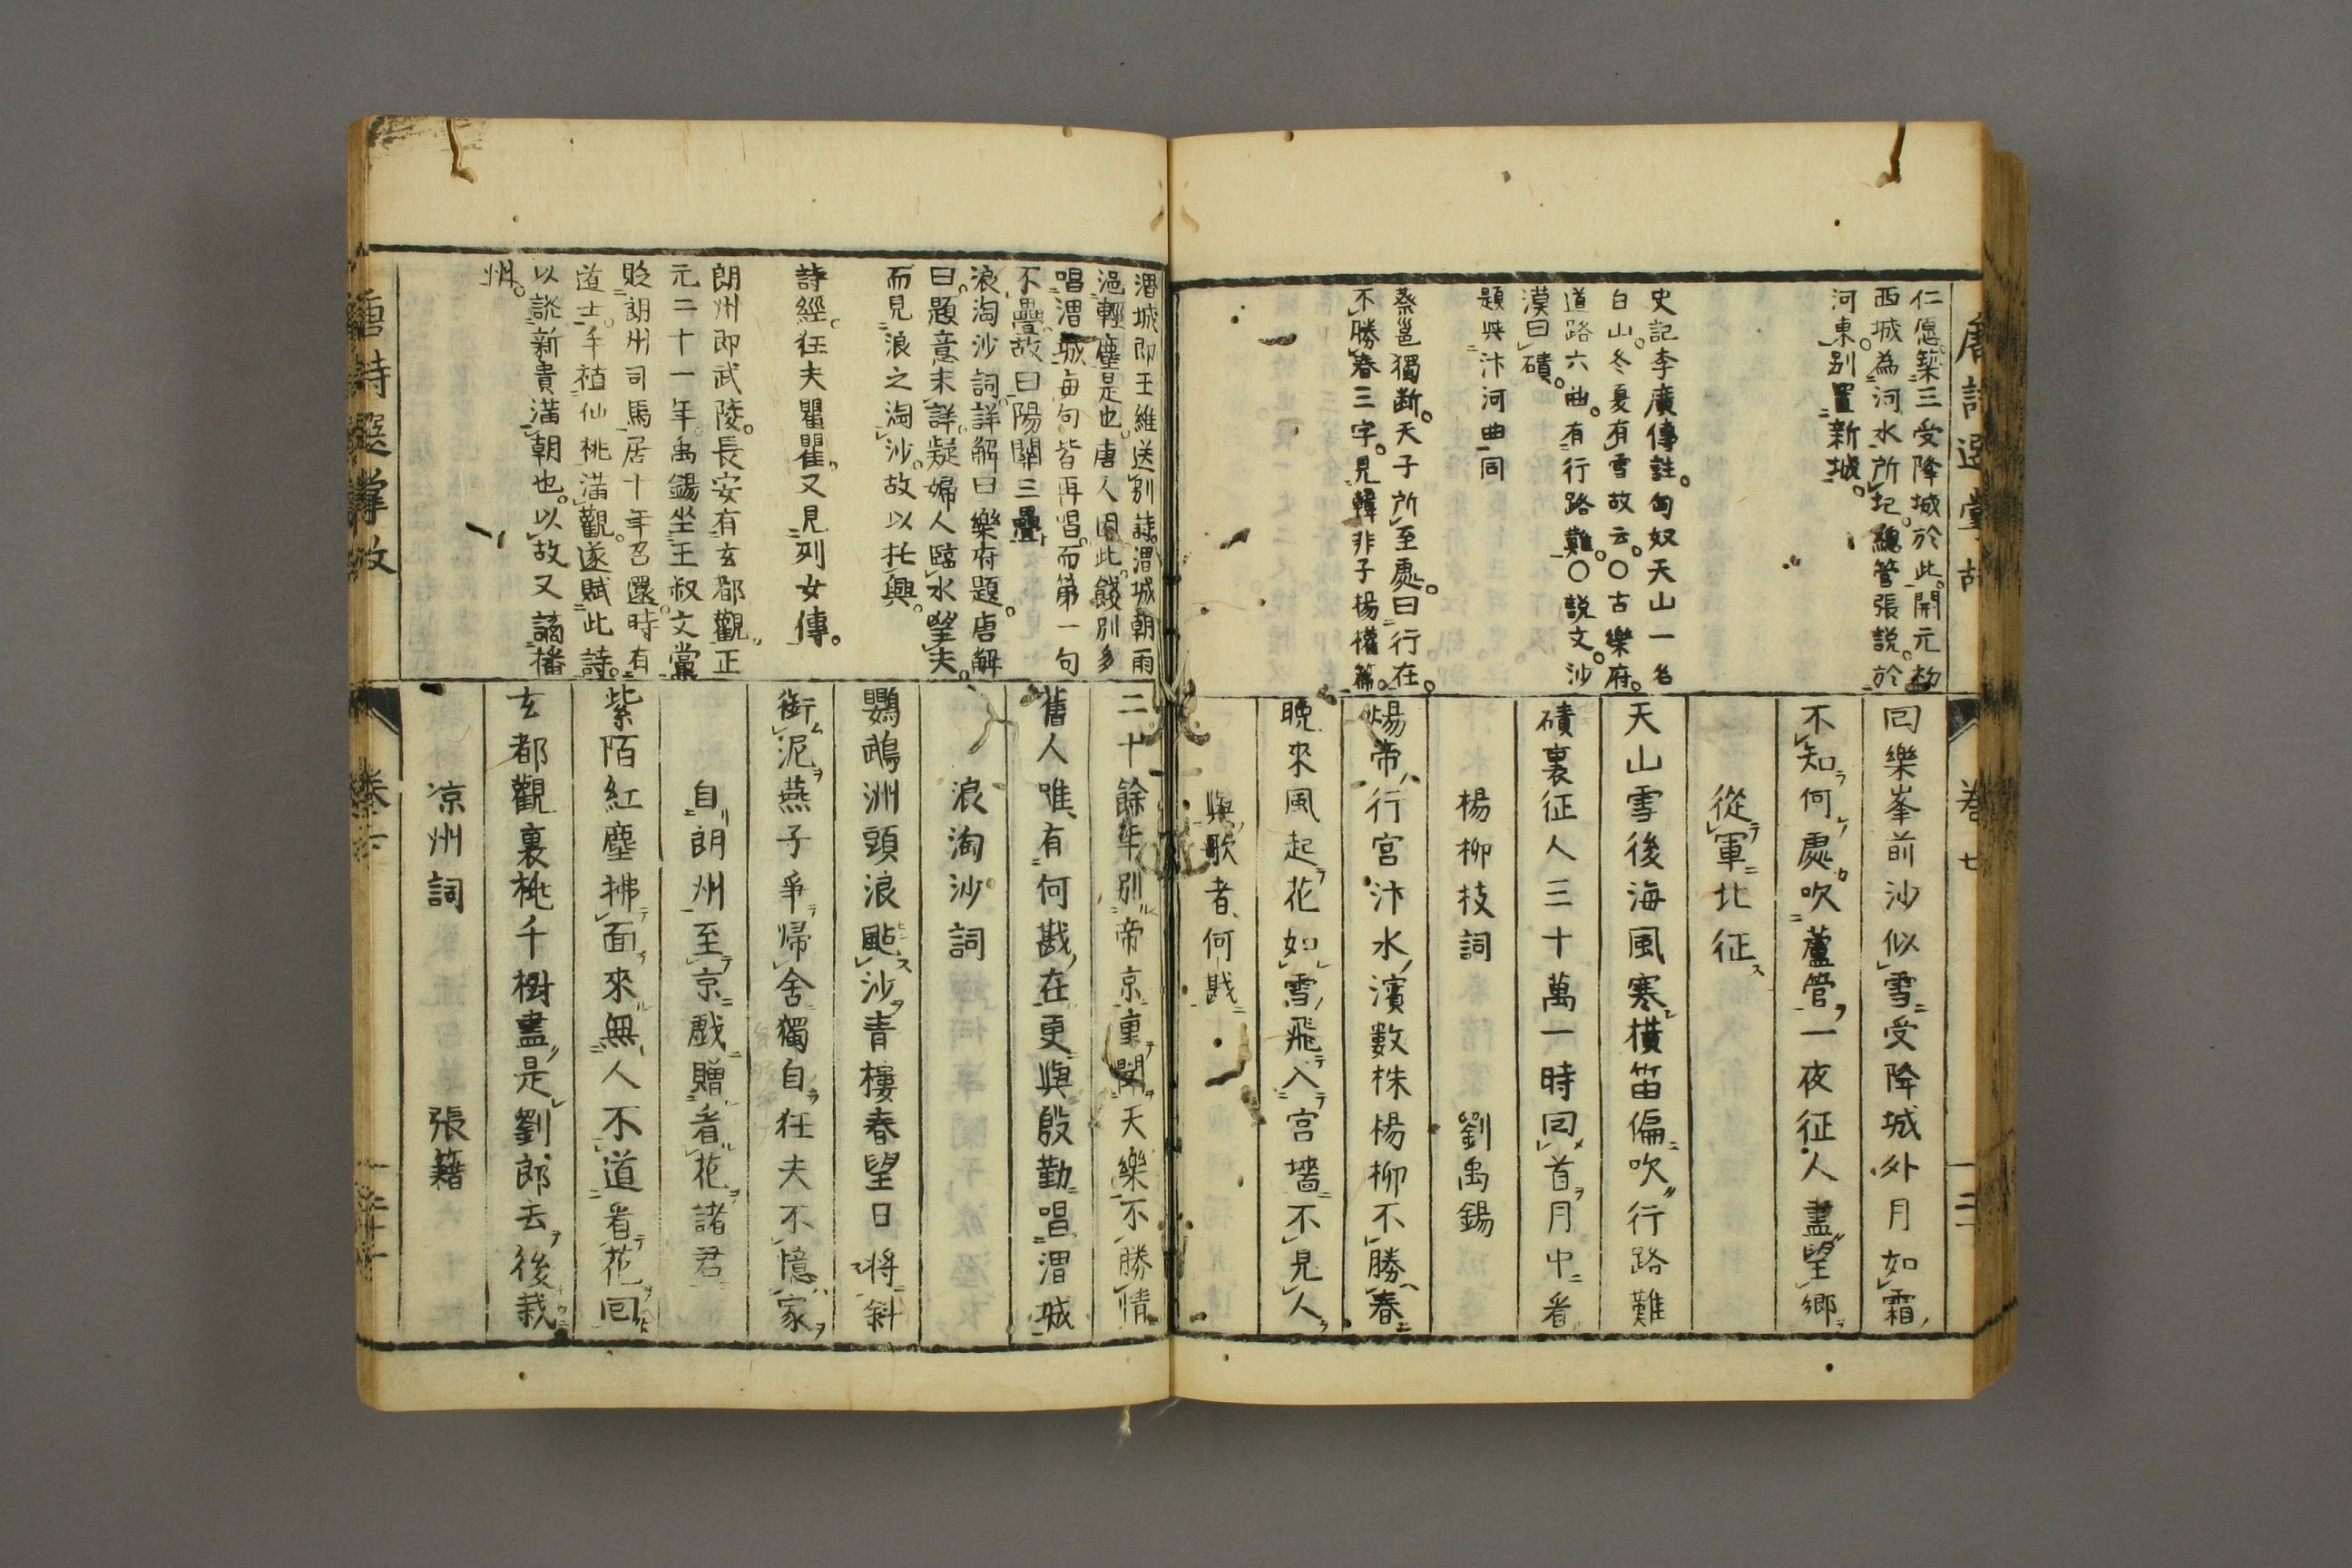 仁愿築三受降城於此開元初
西城為河水所圮總管張説於
河東別置新城。
史記李廣傳註。匈奴天山一名
白山。冬夏有雪故云。○古樂府。
道路六曲。有行路難。○説文。沙
漠曰磧。
題與汴河曲同
蔡邕獨断。天子所至處。曰行在。
不勝春三字。見韓非子楊權篇。
回樂峯前沙似雪受降城外月如霜
不知何處吹蘆管一夜征人盡望郷
從軍北征
天山雪後海風寒橫笛偏吹行路難
磧裏征人三十萬一時回首月中看
楊柳枝詞 劉禹錫
煬帝行宮汴水濱數株楊柳不勝春
晩來風起花如雪飛入宮墻不見人
與歌者何戡
唐詩選掌故 卷七
渭城即王維送別詩。渭城朝雨
浥輕塵是也。唐人因此餞別多
唱渭城毎句皆再唱。而第一句
不疊。故曰陽關三疊
浪淘沙詞。詳解曰樂府題。唐解
曰。題意未詳。疑婦人臨水望夫。
而見浪之淘沙。故以托興。
詩經。狂夫瞿瞿。又見列女傳。
朗州即武陵。長安有玄都觀。正
元二十一年。禹錫坐王叔文黨
貶朗州司馬居十年召還。時有
道士。手植仙桃滿觀。遂賦此詩。
以誚新貴滿朝也。以故又謫播
州。
二十餘年別帝京重聞天樂不勝情
舊人唯有何戡在更與殷勤唱渭城
浪淘沙詞
鸚鵡洲頭浪颭沙青樓春望日將斜
銜泥燕子爭歸舍獨自狂夫不憶家
自朗州至京戲贈看花諸君
紫陌紅塵拂面來無人不道看花回
玄都觀裏桃千樹盡是劉郎去後栽
凉州詞 張籍
唐詩選掌故